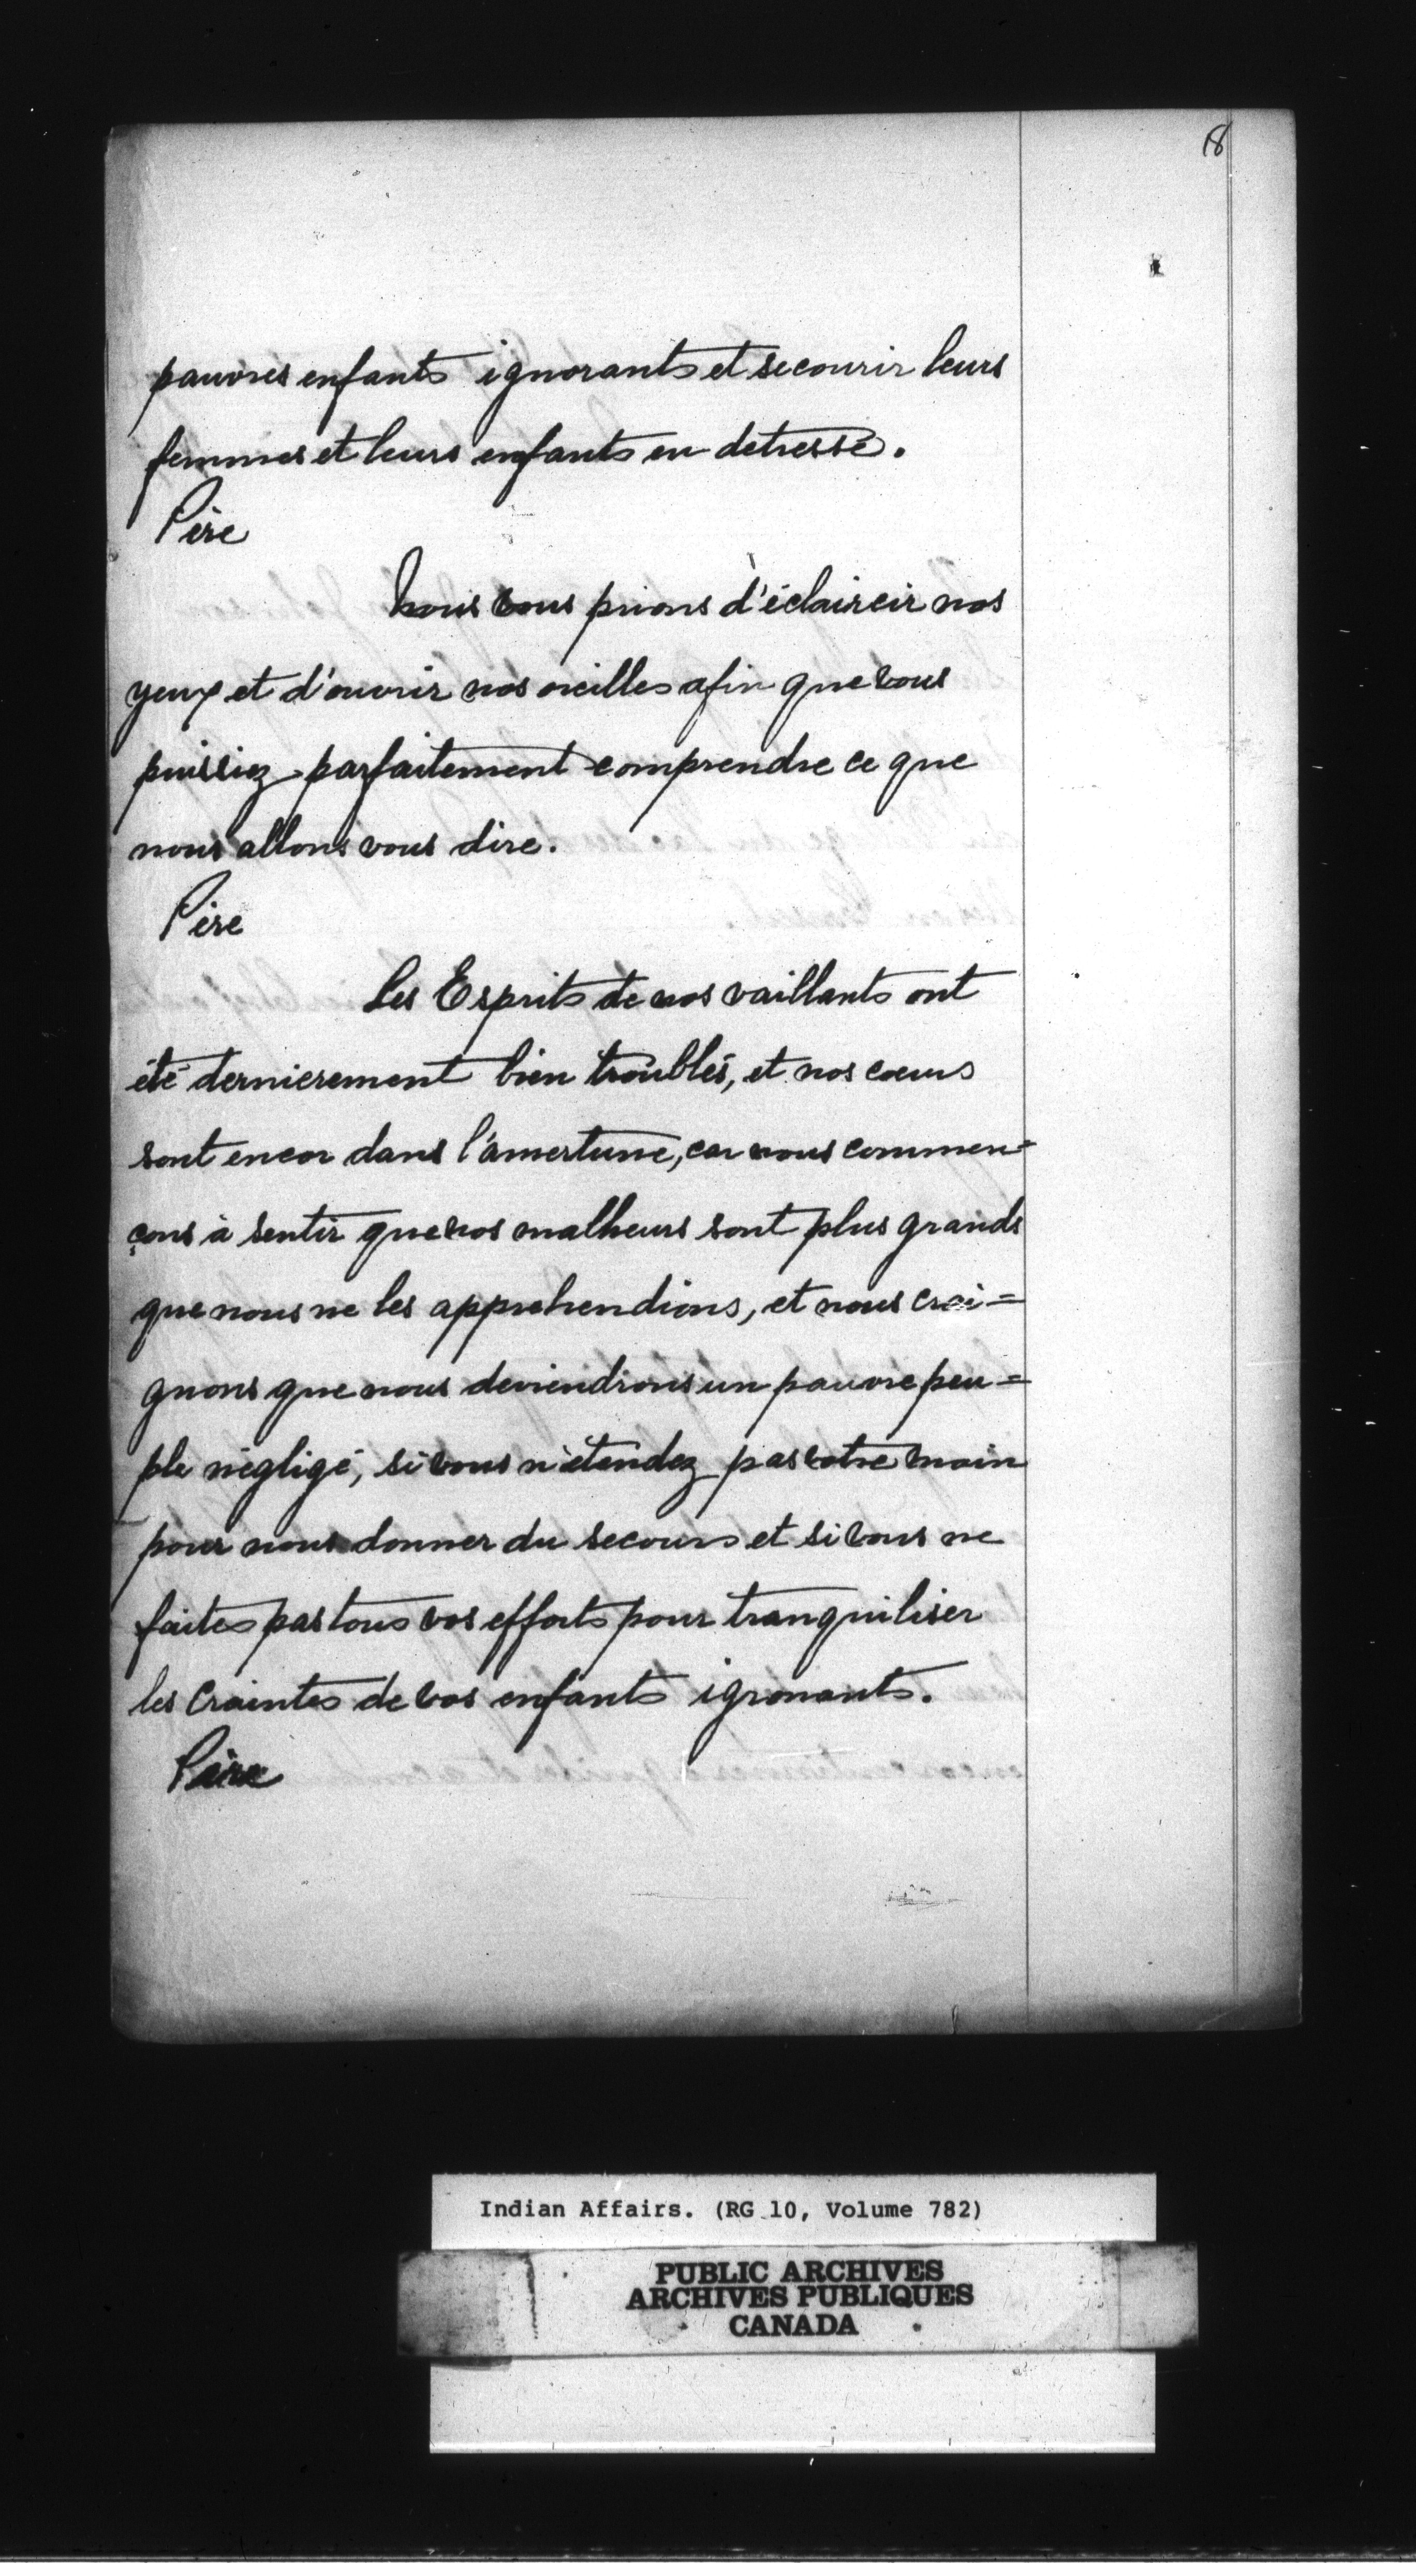 18
pauvres enfants ignorants et secourir leurs
femmes et leurs enfants en detresse.
Père
Nous vous prions d'éclaircir nos
yeux et d'ouvrir nos oreilles afin que vous
puissiez parfaitement comprendre ce que
nous allons vous dire.
Père
Les Esprits de nos vaillants ont
été dernierement bien troublés, et nos coeurs
sont encor dans l'amertume, car nous commen-
çons à sentir que nos malheurs sont plus grands
que nous ne les apprehendions, et nous crai=
gnons que nous deviendrons un pauvre peu=
ple négligé, si vous n'étendez pas votre main
pour nous donner du secours et si vous ne
faites pas tous vos efforts pour tranquiliser
les craintes de vos enfants ignorants.
Père
Indian Affairs. (RG 10, Volume 782)
PUBLIC ARCHIVES
ARCHIVES PUBLIQUES
CANADA